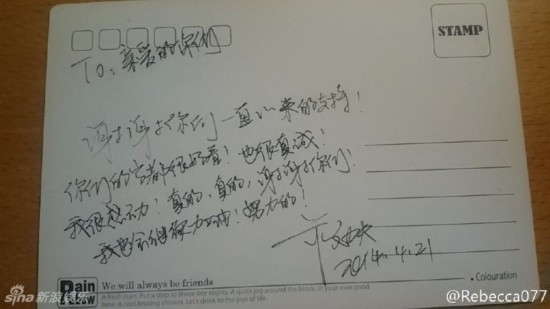 STAMP
To: 亲爱的你们
谢谢你们一直以来的支持！
你们的字都很好看！也很真诚！
我很感动！真的，真的，谢谢你们！
我也会继续加油！努力的！
2014.4.21
Pain
We will always be friends
A fresh start. Put a stop to those late nights. A quick jog around the block, in your ever good
time, & cool bracing showers. Let's drink to the joys of life.
Colouration
sina新浪娱乐
@Rebecca077